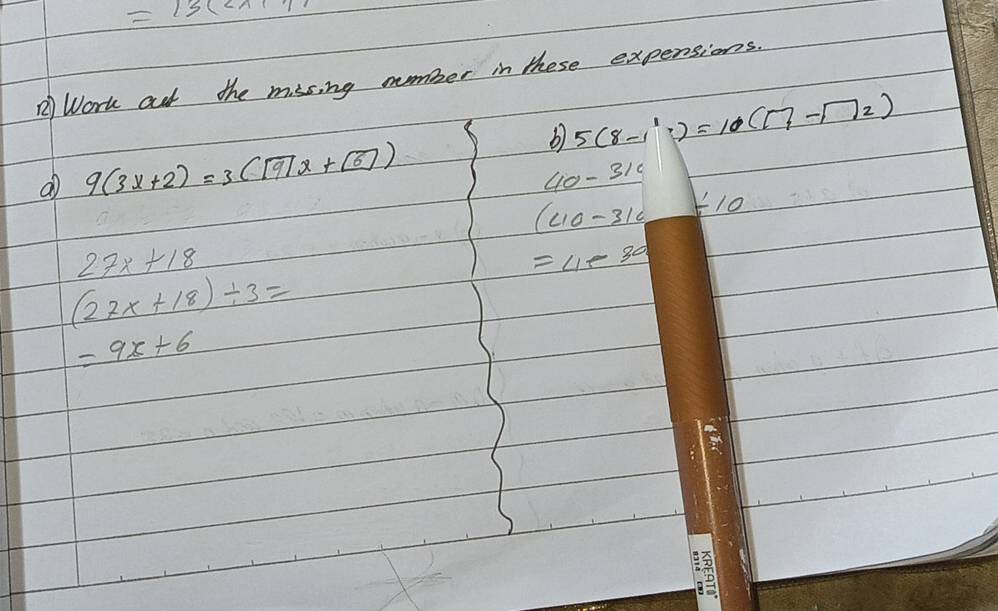 12) Work out the missing number in these expensions.
a) 9(3x+2) = 3(9x + 6)
27x + 18
(27x + 18) ÷ 3 =
= 9x + 6
b) 5(8- ) = 10( - 2)
40 - 31
(40 - 31 ÷ 10
= 4 - 30
KREATO